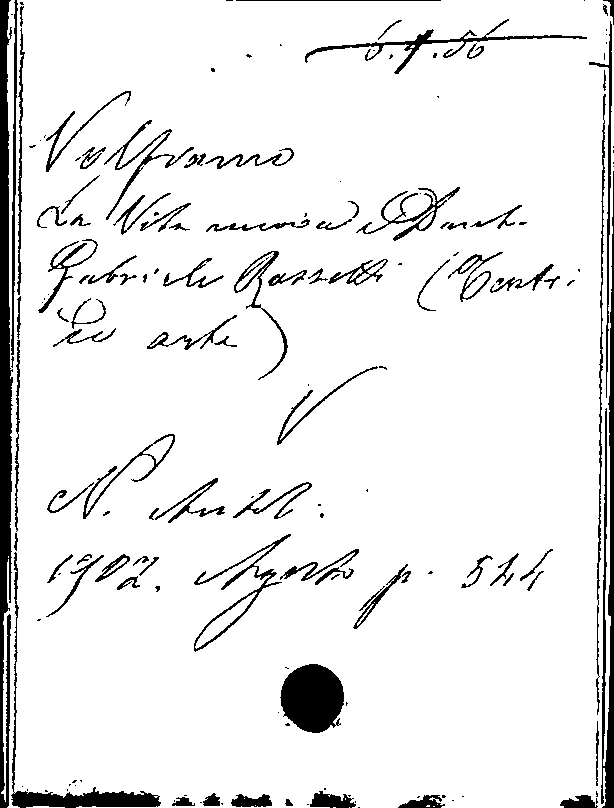 6.4.56
Volframo
La Vita nuova e Dante
Gabriele Rossetti (Teatri
ed arte)
V
N. Antol.
1902. Agosto p. 544